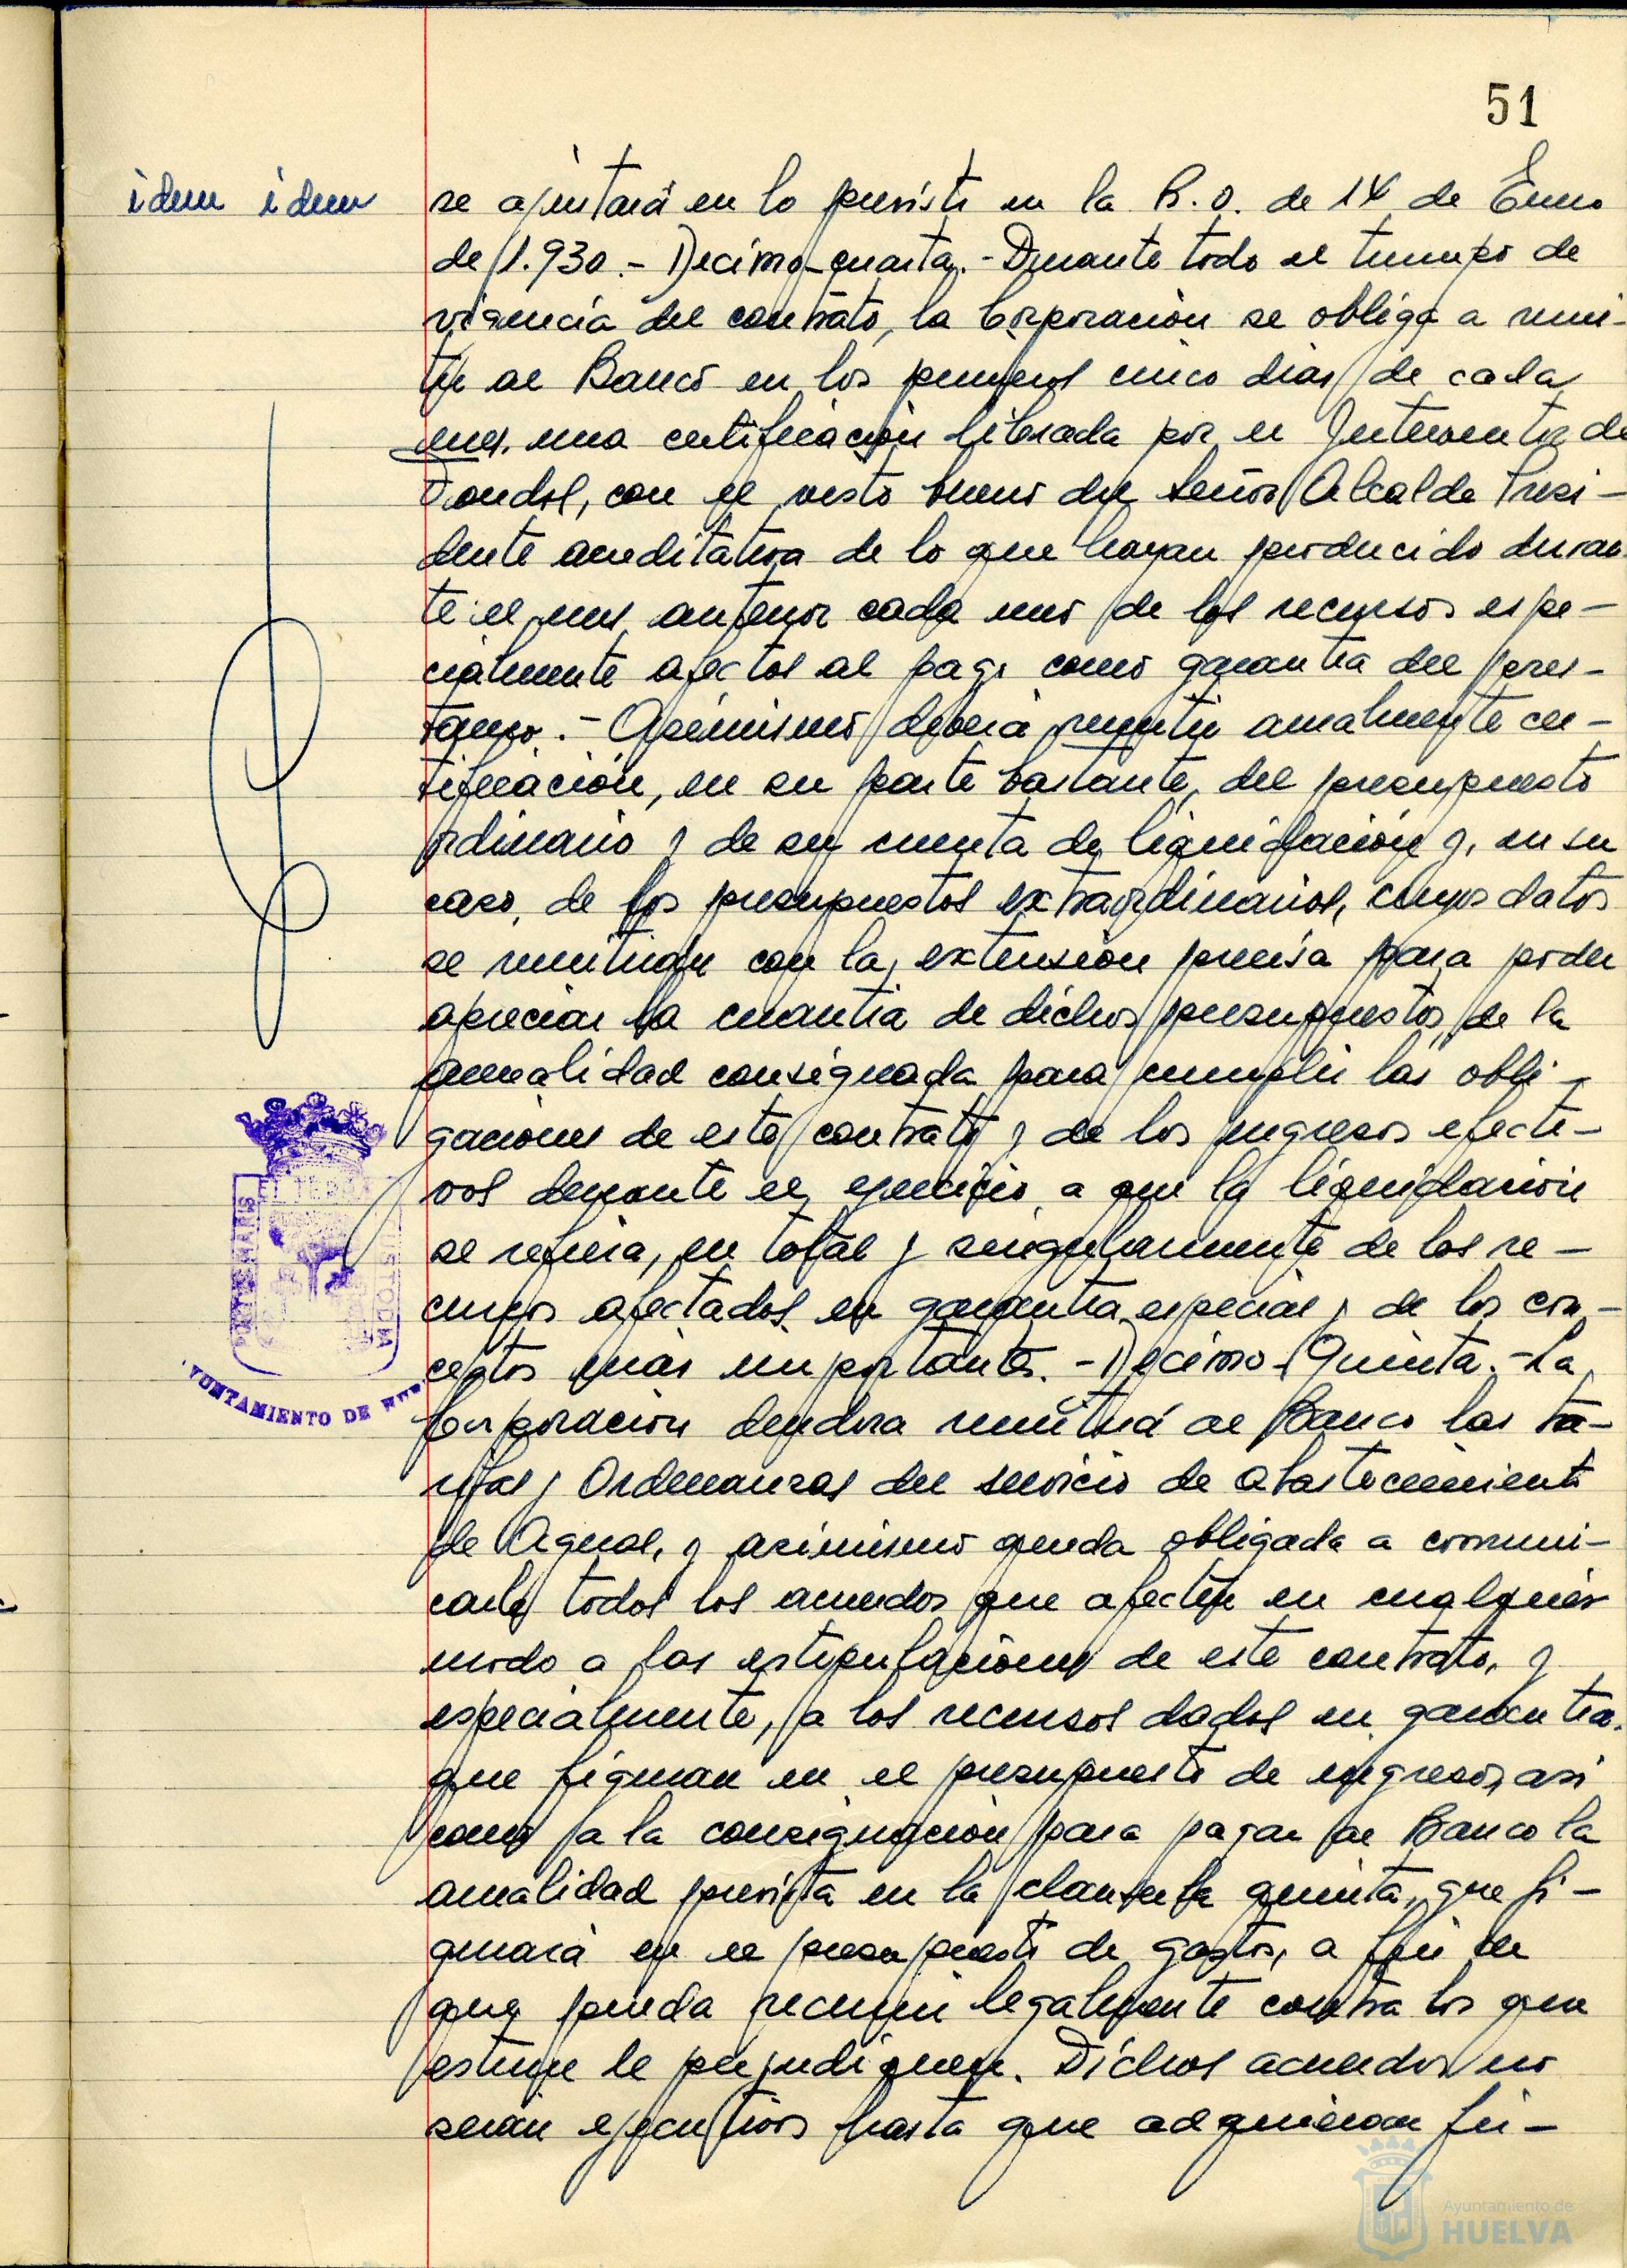 51
idem idem
se ajustará en lo previsto en la R.O. de 14 de Enero
de 1.930.- Decimo-quarta.- Durante todo el tiempo de
vigencia del contrato, la Corporación se obliga a remi-
tir al Banco en los primeros cinco dias de cada
mes. una certificación librada por el Interventor de
Fondos, con el visto bueno del Señor Alcalde Presi-
dente acreditativa de lo que hayan producido duran-
te el mes anterior cada uno de los recursos espe-
cialmente afectos al pago como garantia del pres-
tamo.- Asimismo deberá remitir anualmente cer-
tificación, en su parte bastante, del presupuesto
ordinario y de su cuenta de liquidación y, en su
caso, de los presupuestos extraordinarios, cuyos datos
se remitirán con la extensión precisa para poder
apreciar la cuantia de dichos presupuestos, de la
anualidad consignada para cumplir las obli-
gaciones de este contrato y de los ingresos efecti-
vos durante el ejercicio a que la liquidación
se refiera, en total y singularmente de los re-
cursos afectados en garantia especial y de los con-
ceptos más importantes.- Decimo-Quinta.- La
Corporación deudora remitirá al Banco las ta-
rifas y Ordenanzas del servicio de abastecimiento
de Aguas, y asimismo queda obligada a comuni-
carle todos los acuerdos que afecten en cualquier
modo a las estipulaciones de este contrato, y
especialmente, a los recursos dados en garantia.
que figuran en el presupuesto de ingresos, asi
como a la consignación para pagar al Banco la
anualidad prevista en la clausula quinta, que fi-
gurará en el presupuesto de gastos, a fin de
que pueda recurrir legalmente contra los que
estime le perjudiquen. Dichos acuerdos no
serán ejecutivos hasta que adquieran fir-
PORTUS MARIS
ET TERRAE
CUSTODIA
AYUNTAMIENTO DE
Ayuntamiento de
HUELVA